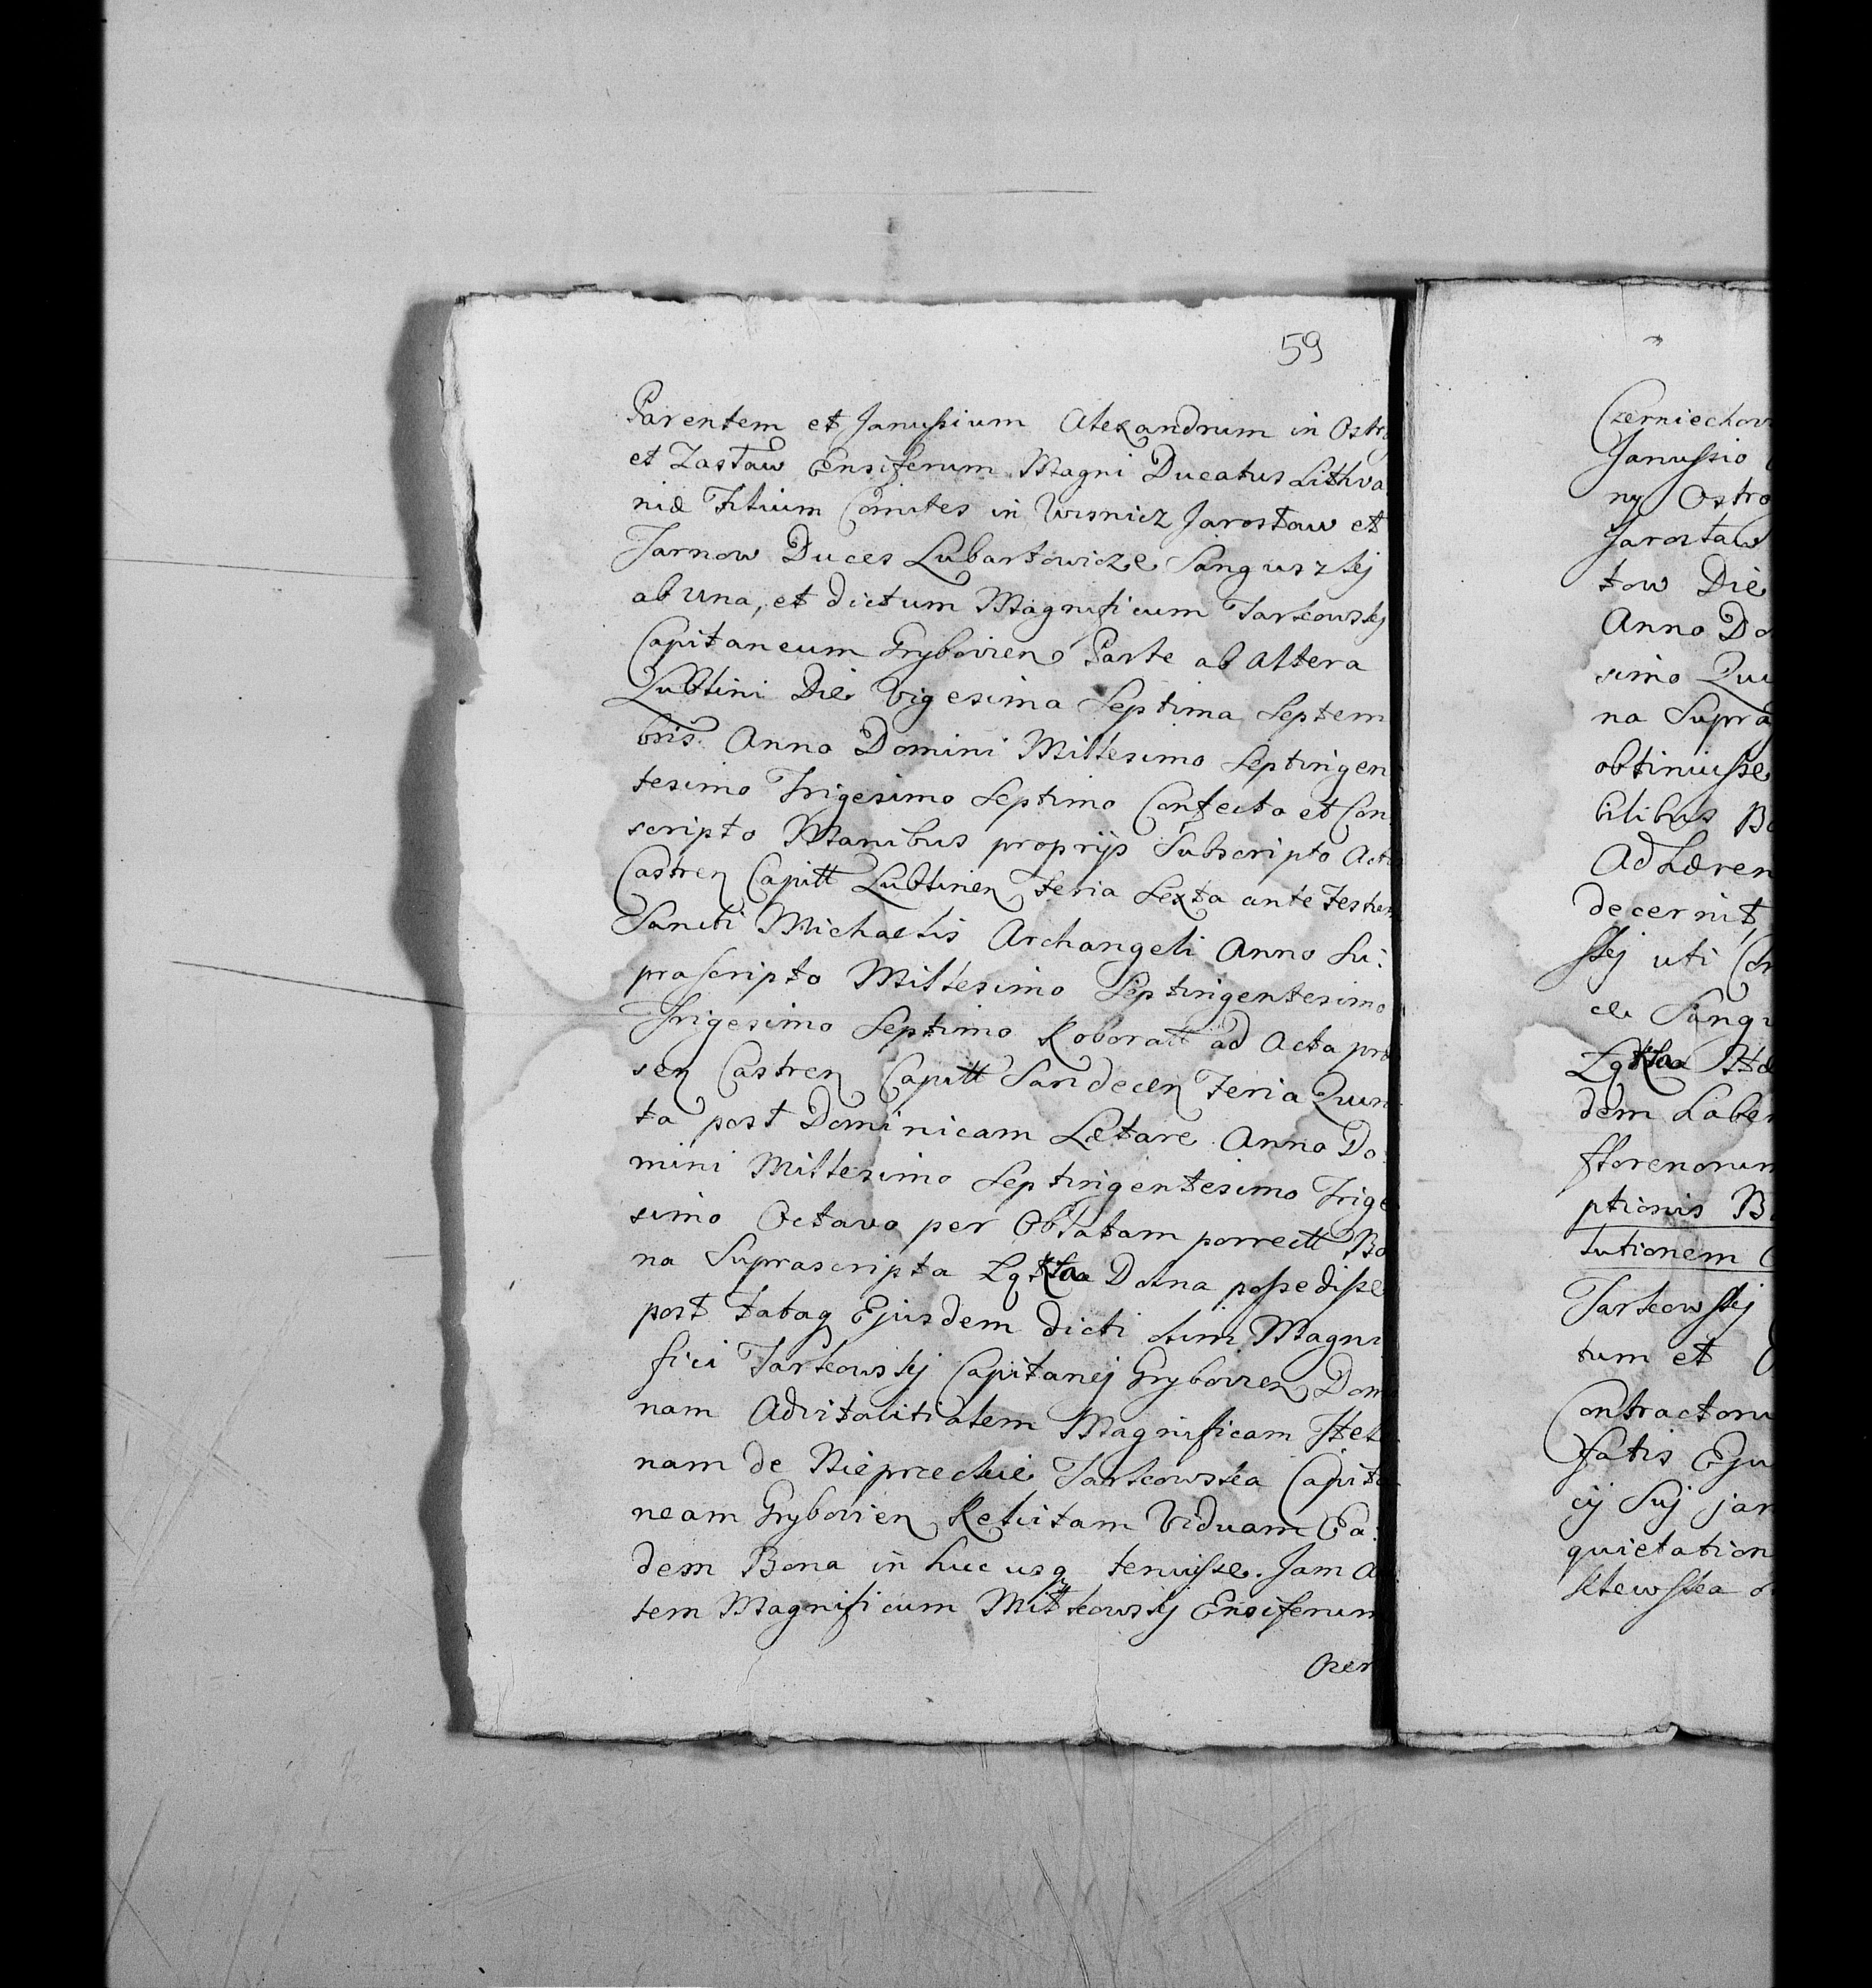 59
Parentem et Janussium Alexandrum in Ostr
et Zasław Ensiferum Magni Ducatus Lithva
niæ Filium Comites in Wisnicz Jarosław et
Tarnow Duces Lubartowicze Sanguszkj
ab una, et dictum Magnificum Tarkowskj
Capitaneum Grybovien Parte ab altera
Lublini Die Vigesima Septima Septem
bris. Anno Domini Millesimo Septingen
tesimo Trigesimo Septimo Confecto et Con
scripto Manibus proprijs Subscripto Act
Castren Capitt Lublinen Feria Sexta ante Festum
Sancti Michaelis Archangeli Anno Su:
prascripto Millesimo Septingentesimo
Trigesimo Septimo Roboratt ad Acta præ
sen Castren Capitt Sandecen Feria Quin
ta post Dominicam Lætare Anno Do:
mini Millesimo Septingentesimo Trige
simo Octavo per Oblatam porrectt Bo
na Suprascripta Dolna possedisse
post fataq Ejusdem dicti olim Magni
fici Tarkowskj Capitanej Grybovien Dom
nam Advitalitiatem Magnificam Hel
nam de Nieprzeckie Tarkowska Capita
neam Grybovien Relictam Viduam Ea:
dem Bona in huc usq tenuisse. Jam A
tem Magnificum Mitkowskj Ensiferum
Czer
Czerniechov
Janussio
ny Ostro
Jarosław
tow Die
Anno Do
simo Qui
na Supra
obtinuisse
bilibus Bo
Adhæren
decernit
skj uti
ce Sangu
dem Labe
florenorum
ptionis B
lutionem
Tarkowskj
tum et
Contractoru
fatis Eju
cij Suj jar
quietation